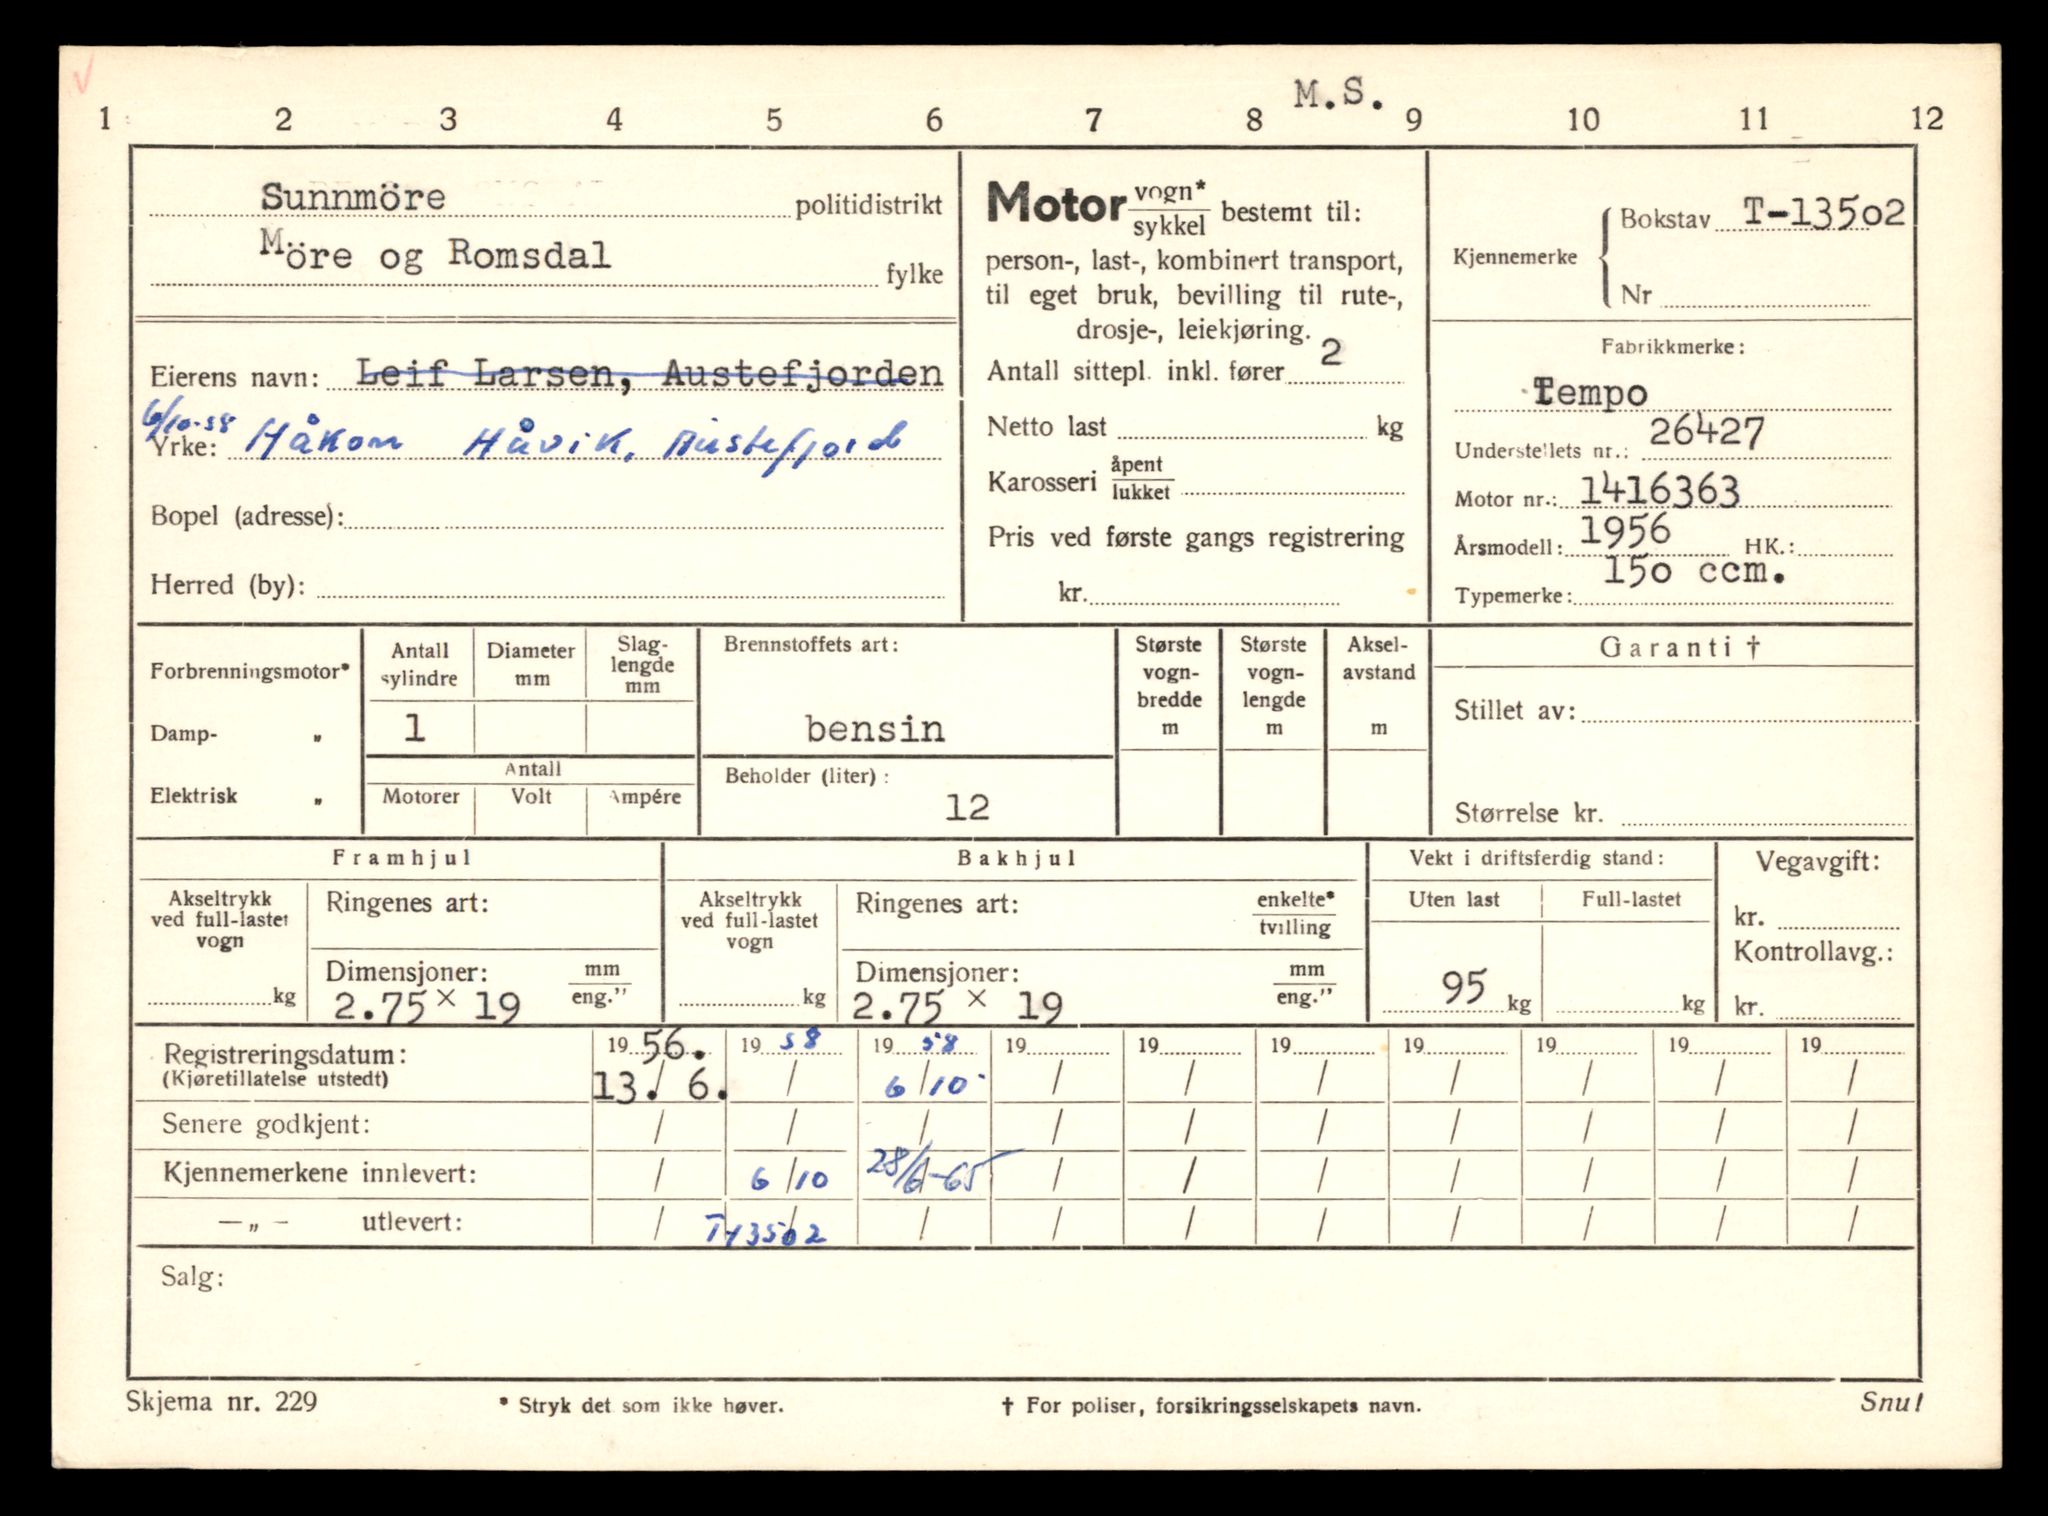 M.S.
1 2 3 4 5 6 7 8 9 10 11 12
Sunnmöre politidistrikt
Möre og Romsdal fylke
Eierens navn: Leif Larsen, Austefjorden
6/10-58
Yrke: Håkon Håvik, Austefjord
Bopel (adresse):
Herred (by):
Motor vogn*/sykkel bestemt til:
person-, last-, kombinert transport,
til eget bruk, bevilling til rute-,
drosje-, leiekjøring.
Antall sittepl. inkl. fører 2
Netto last kg
Karosseri åpent/lukket
Pris ved første gangs registrering
kr.
Kjennemerke Bokstav T-13502
Nr
Fabrikkmerke:
Tempo
Understellets nr.: 26427
Motor nr.: 1416363
Årsmodell: 1956 HK.:
150 ccm.
Typemerke:
Forbrenningsmotor*
Damp- „
Elektrisk „
Antall sylindre
1
Diameter mm
Slag-
lengde
mm
Antall
Motorer Volt Ampére
Brennstoffets art:
bensin
Beholder (liter):
12
Største
vogn-
bredde
m
Største
vogn-
lengde
m
Aksel-
avstand
m
Garanti †
Stillet av:
Størrelse kr.
Framhjul
Akseltrykk
ved full-lastet
vogn
kg
Ringenes art:
Dimensjoner: mm/eng."
2.75 × 19
Bakhjul
Akseltrykk
ved full-lastet
vogn
kg
Ringenes art: enkelte*/tvilling
Dimensjoner: mm/eng."
2.75 × 19
Vekt i driftsferdig stand:
Uten last Full-lastet
95 kg kg
Vegavgift:
kr.
Kontrollavg.:
kr.
Registreringsdatum: 19 56. 19 58 19 58 19 19 19 19 19 19 19
(Kjøretillatelse utstedt) 13. 6. / 6/10 / / / / / / /
Senere godkjent: / / / / / / / / / /
Kjennemerkene innlevert: / 6/10 28/6-65 / / / / / / /
—„— utlevert: / T-13502 / / / / / / / /
Salg:
Skjema nr. 229 * Stryk det som ikke høver. † For poliser, forsikringsselskapets navn. Snu!